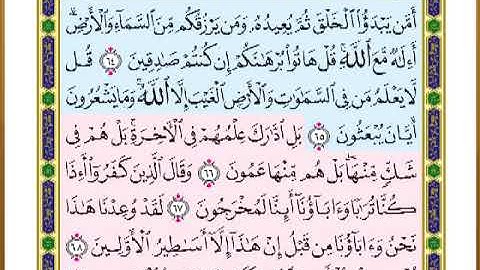 أَمَّن يَبْدَؤُا۟ ٱلْخَلْقَ ثُمَّ يُعِيدُهُۥ وَمَن يَرْزُقُكُم مِّنَ ٱلسَّمَآءِ وَٱلْأَرْضِ ۗ
أَءِلَٰهٌ مَّعَ ٱللَّهِ ۚ قُلْ هَاتُوا۟ بُرْهَٰنَكُمْ إِن كُنتُمْ صَٰدِقِينَ ٦٤ قُل
لَّا يَعْلَمُ مَن فِى ٱلسَّمَٰوَٰتِ وَٱلْأَرْضِ ٱلْغَيْبَ إِلَّا ٱللَّهُ ۚ وَمَا يَشْعُرُونَ
أَيَّانَ يُبْعَثُونَ ٦٥ بَلِ ٱدَّٰرَكَ عِلْمُهُمْ فِى ٱلْءَاخِرَةِ ۚ بَلْ هُمْ فِى
شَكٍّ مِّنْهَا ۖ بَلْ هُم مِّنْهَا عَمُونَ ٦٦ وَقَالَ ٱلَّذِينَ كَفَرُوٓا۟ أَءِذَا
كُنَّا تُرَٰبًا وَءَابَآؤُنَآ أَئِنَّا لَمُخْرَجُونَ ٦٧ لَقَدْ وُعِدْنَا هَٰذَا
نَحْنُ وَءَابَآؤُنَا مِن قَبْلُ إِنْ هَٰذَآ إِلَّآ أَسَٰطِيرُ ٱلْأَوَّلِينَ ٦٨